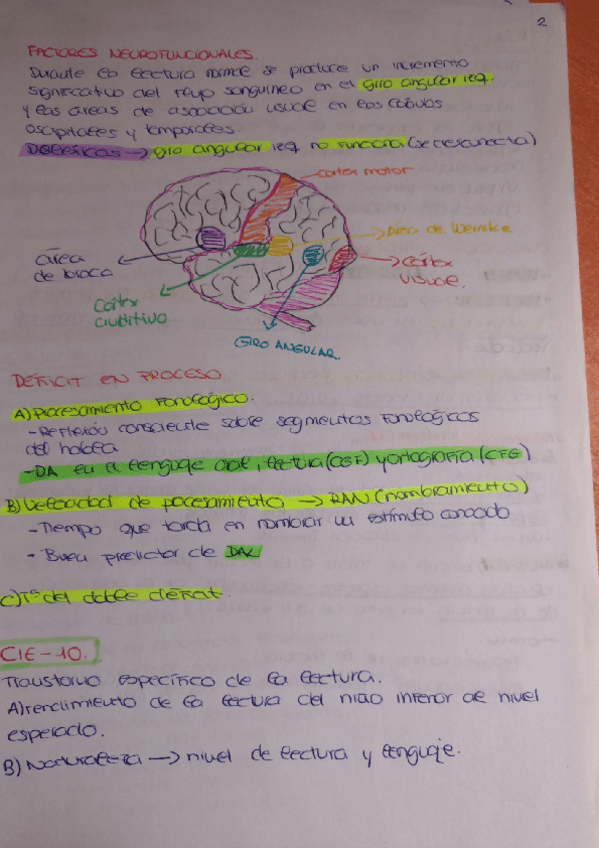 2
FACTORES NEUROFUNCIONALES.
Durante la lectura normal se produce un incremento
significativo del flujo sanguíneo en el giro angular izq.
y las áreas de asociación visual en los lóbulos
occipitales y temporales.
DISLÉXICOS → giro angular izq no funciona (se desconecta)
cortex motor
Área de Wernike
área
de broca
córtex
visual.
Cortex
auditivo
GIRO ANGULAR
DÉFICIT EN PROCESO
A) Procesamiento fonológico.
- Reflexión consciente sobre segmentos fonológicos
del habla
- DA en el lenguaje oral, lectura (CGF) y ortografía (CFG)
B) Velocidad de procesamiento → RAN (nombramiento)
- Tiempo que tarda en nombrar un estímulo conocido
- Buen predictor de DAL
C) Tª del doble déficit.
CIE-10.
Trastorno específico de la lectura.
A) rendimiento de la lectura del niño inferior al nivel
esperado.
B) Naturaleza → nivel de lectura y lenguaje.